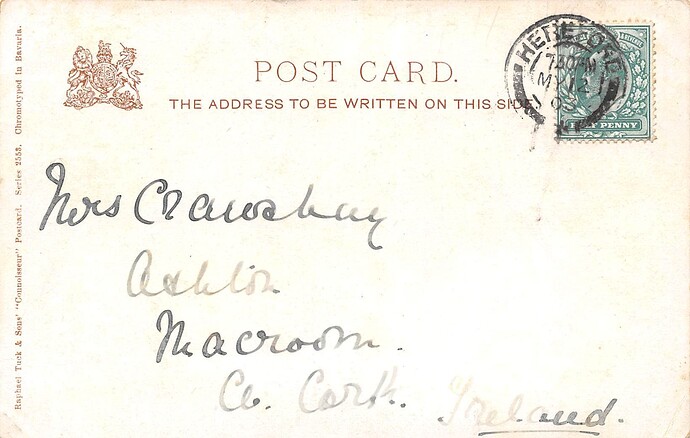 Raphael Tuck & Sons' "Connoisseur" Postcard. Series 2553. Chromotyped in Bavaria.
POST CARD.
THE ADDRESS TO BE WRITTEN ON THIS SIDE
HEREFORD
MY 12
03
HALF PENNY
Mrs Crawshay
Ashton
Macroom.
Co. Cork. Ireland.